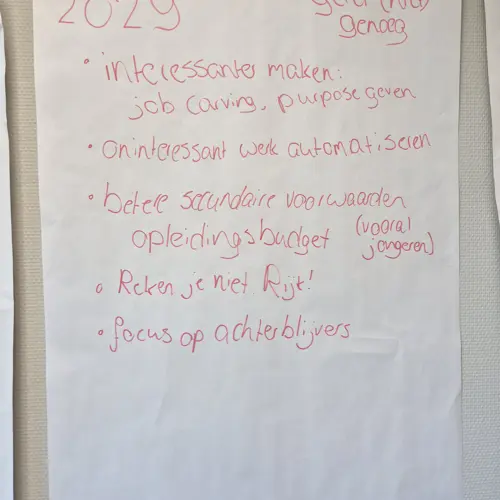 2029
(niet)
genoeg
• interessanter maken:
job carving, purpose geven
• oninteressant werk automatiseren
• betere secundaire voorwaarden
opleidingsbudget (vooral
jongeren)
• Reken je niet Rijk!
• focus op achterblijvers